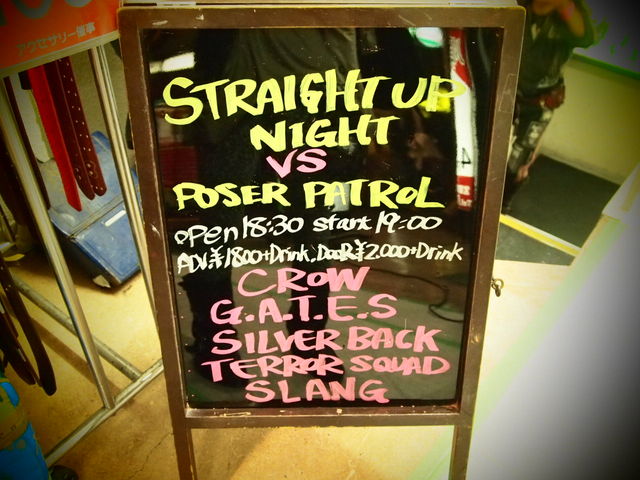 アクセサリー催事
STRAIGHT UP
NIGHT
VS
POSER PATROL
OPEN 18:30 start 19:00
ADV.¥1800+Drink, DOOR¥2.000+Drink
CROW
G.A.T.E.S
SILVER BACK
TERROR SQUAD
SLANG